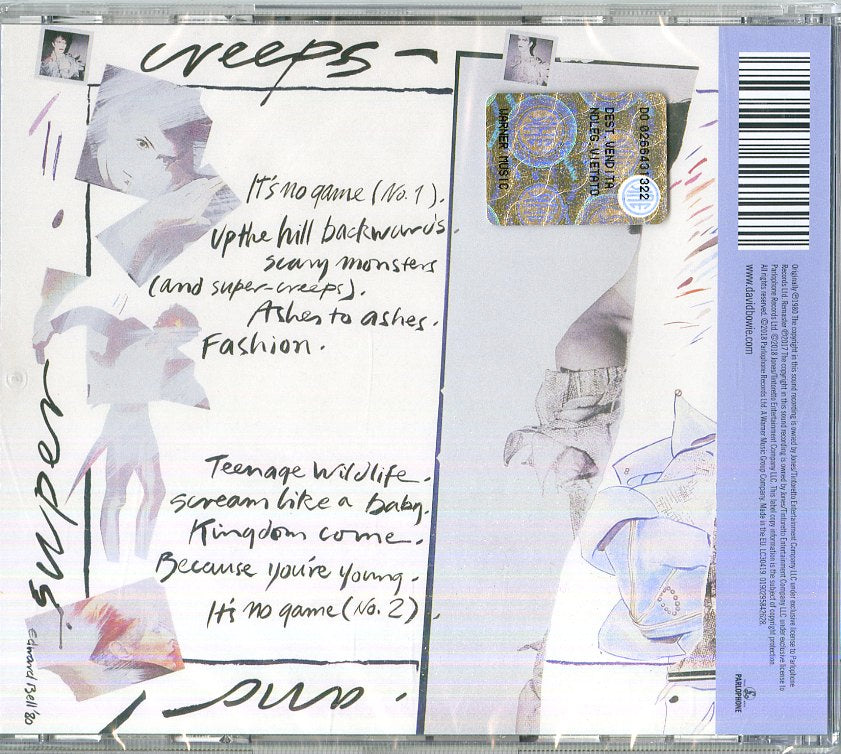 creeps
It's no game (No. 1).
Up the hill backwards.
scary monsters
(and super-creeps).
Ashes to ashes.
Fashion.
Teenage Wildlife.
Scream like a baby.
Kingdom come.
Because you're young.
It's no game (No. 2).
and
super
Edward Bell '80
DO 0266431322
DEST. VENDITA
NOLEG. VIETATO
WARNER MUSIC
Originally ℗1980 The copyright in this sound recording is owned by Jones/Tintoretto Entertainment Company LLC under exclusive license to Parlophone
Records Ltd. Remaster ℗2017 The copyright in this sound recording is owned by Jones/Tintoretto Entertainment Company LLC under exclusive license to
Parlophone Records Ltd. ©2018 Jones/Tintoretto Entertainment Company, LLC. This label copy information is the subject of copyright protection.
All rights reserved. ©2018 Parlophone Records Ltd. A Warner Music Group Company. Made in the EU. LC30419. 0190295842628.
www.davidbowie.com
PARLOPHONE